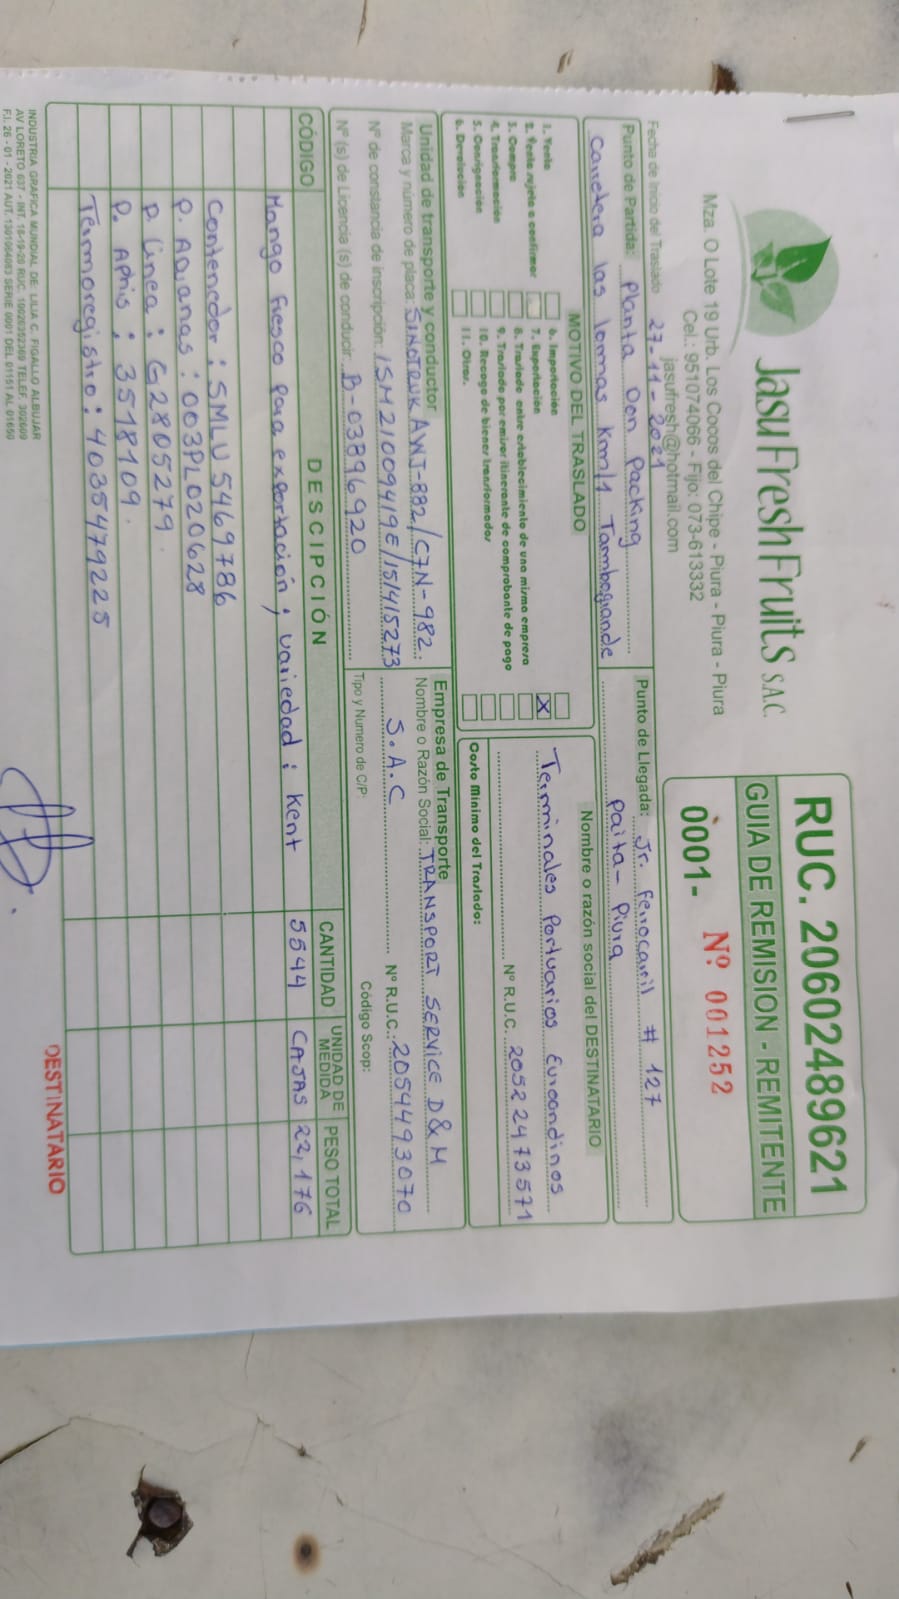 JasuFreshFruits S.A.C
Mza. O Lote 19 Urb. Los Cocos del Chipe - Piura - Piura
Cel.: 951074066 - Fijo: 073-613332
jasufresh@hotmail.com
RUC. 20602489621
GUIA DE REMISION - REMITENTE
0001- Nº 001252
Fecha de Inicio del Traslado 27-11-2021
Punto de Partida: Planta Don Packing
Carretera las lomas Km 11 Tambogrande
Punto de Llegada: Jr. Ferrocarril # 127
Paita - Piura
MOTIVO DEL TRASLADO
1. Venta
2. Venta sujeta a confirmar
3. Compra
4. Transformación
5. Consignación
6. Devolución
6. Importación
7. Exportación X
8. Traslado entre establecimiento de una misma empresa
9. Traslado por emisor itinerante de comprobante de pago
10. Recogo de bienes transformados
11. Otros.
Nombre o razón social del DESTINATARIO
Terminales Portuarios Euroandinos
Nº R.U.C. 20522473571
Costo Mínimo del Traslado:
Unidad de transporte y conductor
Marca y número de placa: SINOTRUK AWJ-882/C7N-982
Nº de constancia de inscripción: 15M21009419E/151415273
Nº (s) de Licencia (s) de conducir: B-03896920
Empresa de Transporte
Nombre o Razón Social: TRANSPORT SERVICE D&M
S.A.C Nº R.U.C.: 20544493070
Tipo y Numero de C/P: Código Scop:
CÓDIGO DESCIPCIÓN CANTIDAD UNIDAD DE MEDIDA PESO TOTAL
Mango fresco para exportación; variedad: Kent 5544 CAJAS 22,176
Contenedor: SMLU 5469786
P. Aduanas: 003PL020628
P. Linea: G2805279
P. Aphis: 3518109
Termoregistro: 4035479225
INDUSTRIA GRAFICA MUNDIAL DE: LILIA C. FIGALLO ALBUJAR
AV LORETO 637 - INT. 18-19-20 RUC. 10026352369 TELEF. 302609
F.I. 26 - 01 - 2021 AUT. 1301064083 SERIE 0001 DEL 01151 AL 01650
DESTINATARIO